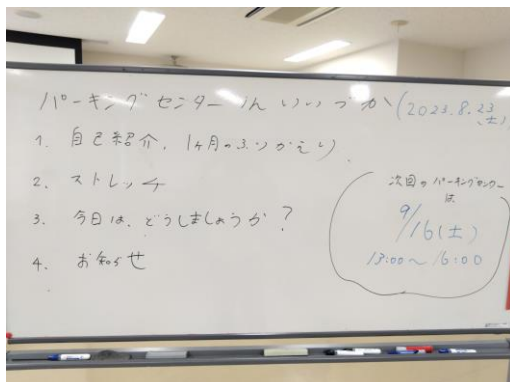 パーキングセンター inいいづか(2023.8.23(土))
1. 自己紹介、1ヶ月のふりかえり
2. ストレッチ
3. 今日は、どうしましょうか?
4. お知らせ
次回のパーキングセンター
は
9/16(土)
13:00〜16:00